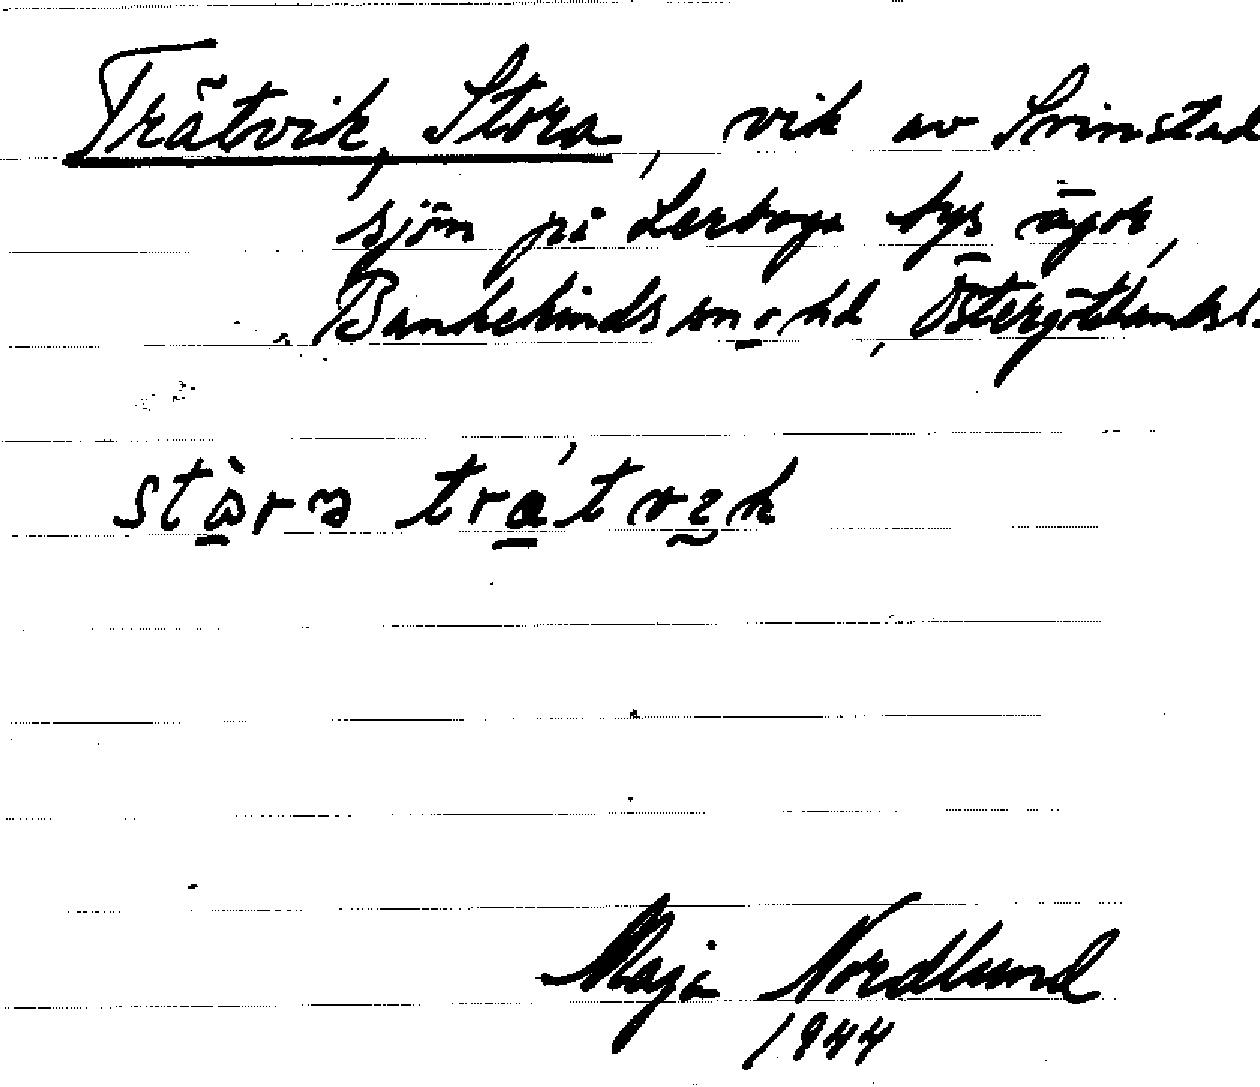 Trätvik, Stora, vik av Svinstad
sjön på Lerboga bys ägor,
Bankekinds sn. o. hd, Östergötlands l.
stòra trátvik
Maja Nordlund
1944